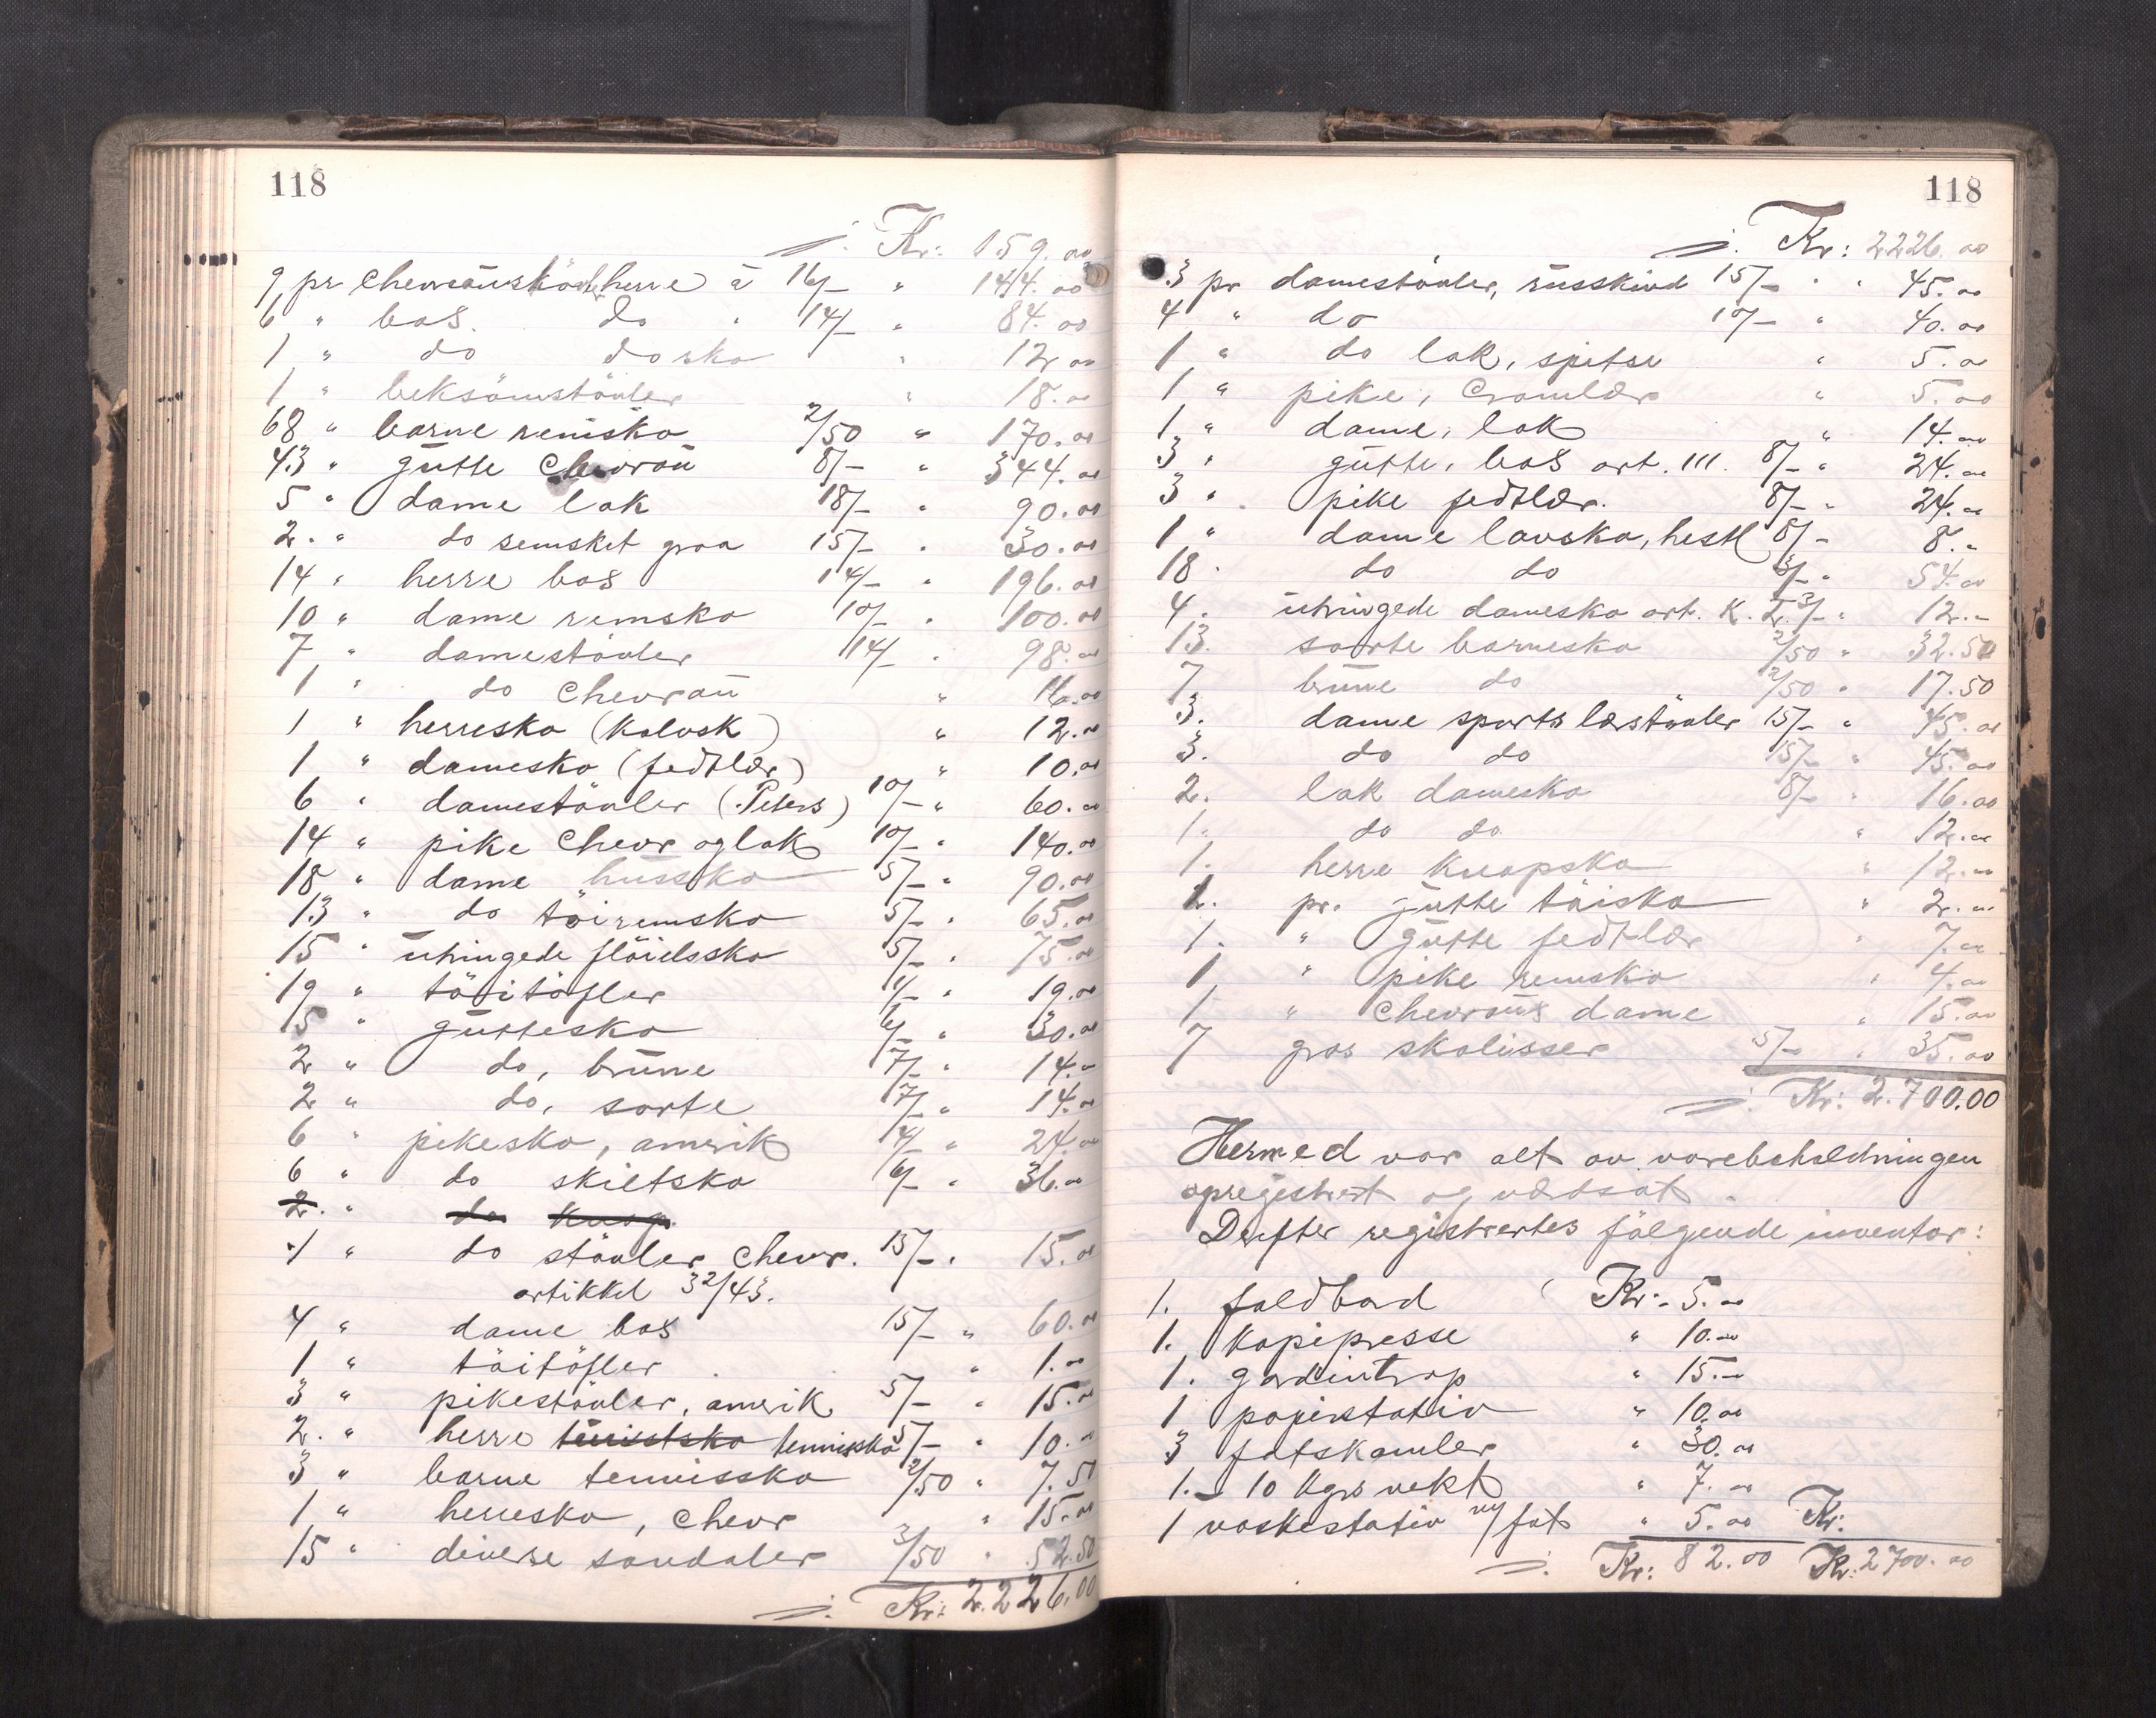 118
Kr: 159.00
9 pr chevrauxstövl. herre à 16/- " 144.00
6 " box do " 14/- " 84.00
1 " do do sko " 12.00
1 " beksömstövler " 18.00
68 " barne remsko 2/50 " 170.00
43 " gutte chevrau 8/- " 344.00
5 " dame lak 18/- " 90.00
2 " do semsket graa 15/- " 30.00
14 " herre box 14/- " 196.00
10 " dame remsko 10/- " 100.00
7 " damestövler 14/- " 98.00
1 " do chevrau " 16.00
1 " herresko (kalvsk) " 12.00
1 " damesko (fedtlær) " 10.00
6 " damestövler (Peters) 10/- " 60.00
14 " pike chevr og lak 10/- " 140.00
18 " dame hussko 5/- " 90.00
13 " do töiremsko 5/- " 65.00
15 " uhringede flöidssko 5/- " 75.00
19 " töitöfler 1/- " 19.00
5 " guttesko 6/- " 30.00
2 " do, brune 7/- " 14.-
2 " do, sorte 7/- " 14.00
6 " pikesko, amerik 4/- " 24.00
6 " do skiltsko 6/- " 36.00
2. " do knap.
1 " do stövler chevr. 15/- " 15.00
artikkel 32/43.
4 " dame box 15/- " 60.00
1 " töitöfler " 1.00
3 " pikestövler, amerik 5/- " 15.00
2. " herre turistsko tennissko 5/- " 10.00
3 " barne tennissko 2/50 " 7.50
1 " herresko, chevr " 15.00
15 " diverse sandaler 3/50 " 52.50
Kr: 2.226.00
118
Kr: 2226.00
3 pr damestövler, russkind 15/- " 45.00
4 " do 10/- " 40.00
1 " do lak, spitse " 5.00
1 " pike, cromlær " 5.00
1 " dame, lak " 14.00
3 " gutte, box art. 111. 8/- " 24.00
3 " pike fedtlær. 8/- " 24.00
1 " dame lavsko, hestl 8/- 8.-
18 " do do 3/- " 54.00
4. uhringede damesko art. K. I. 3/- " 12.-
13. sorte barnesko 2/50 " 32.50
7. brune do 2/50 " 17.50
3. dame sports lærstövler 15/- " 45.00
3. do do 15/- " 45.00
2. lak damesko 8/- " 16.00
1. do do " 12.00
1. herre knapsko " 12.00
1. pr. gutte töisko " 2.00
1. " gutte fedtlær " 7.00
1 " pike remsko " 4.00
1 " chevraux dame " 15.00
7 gros skolisser 5/- " 35.00
Kr: 2.700.00
Hermed var alt av varebeholdningen
opregistrert og værdsat.
Derefter registrertes fölgende inventar:
1. faldbord Kr: 5.00
1. kopipresse " 10.00
1. gardintrap " 15.-
1 papirstativ " 10.00
3 fotskamler " 30.00
1. 10 kgrs vekt " 7.00
1 vaskestativ m/fat " 5.00 Kr.
Kr: 82.00 Kr. 2700.00